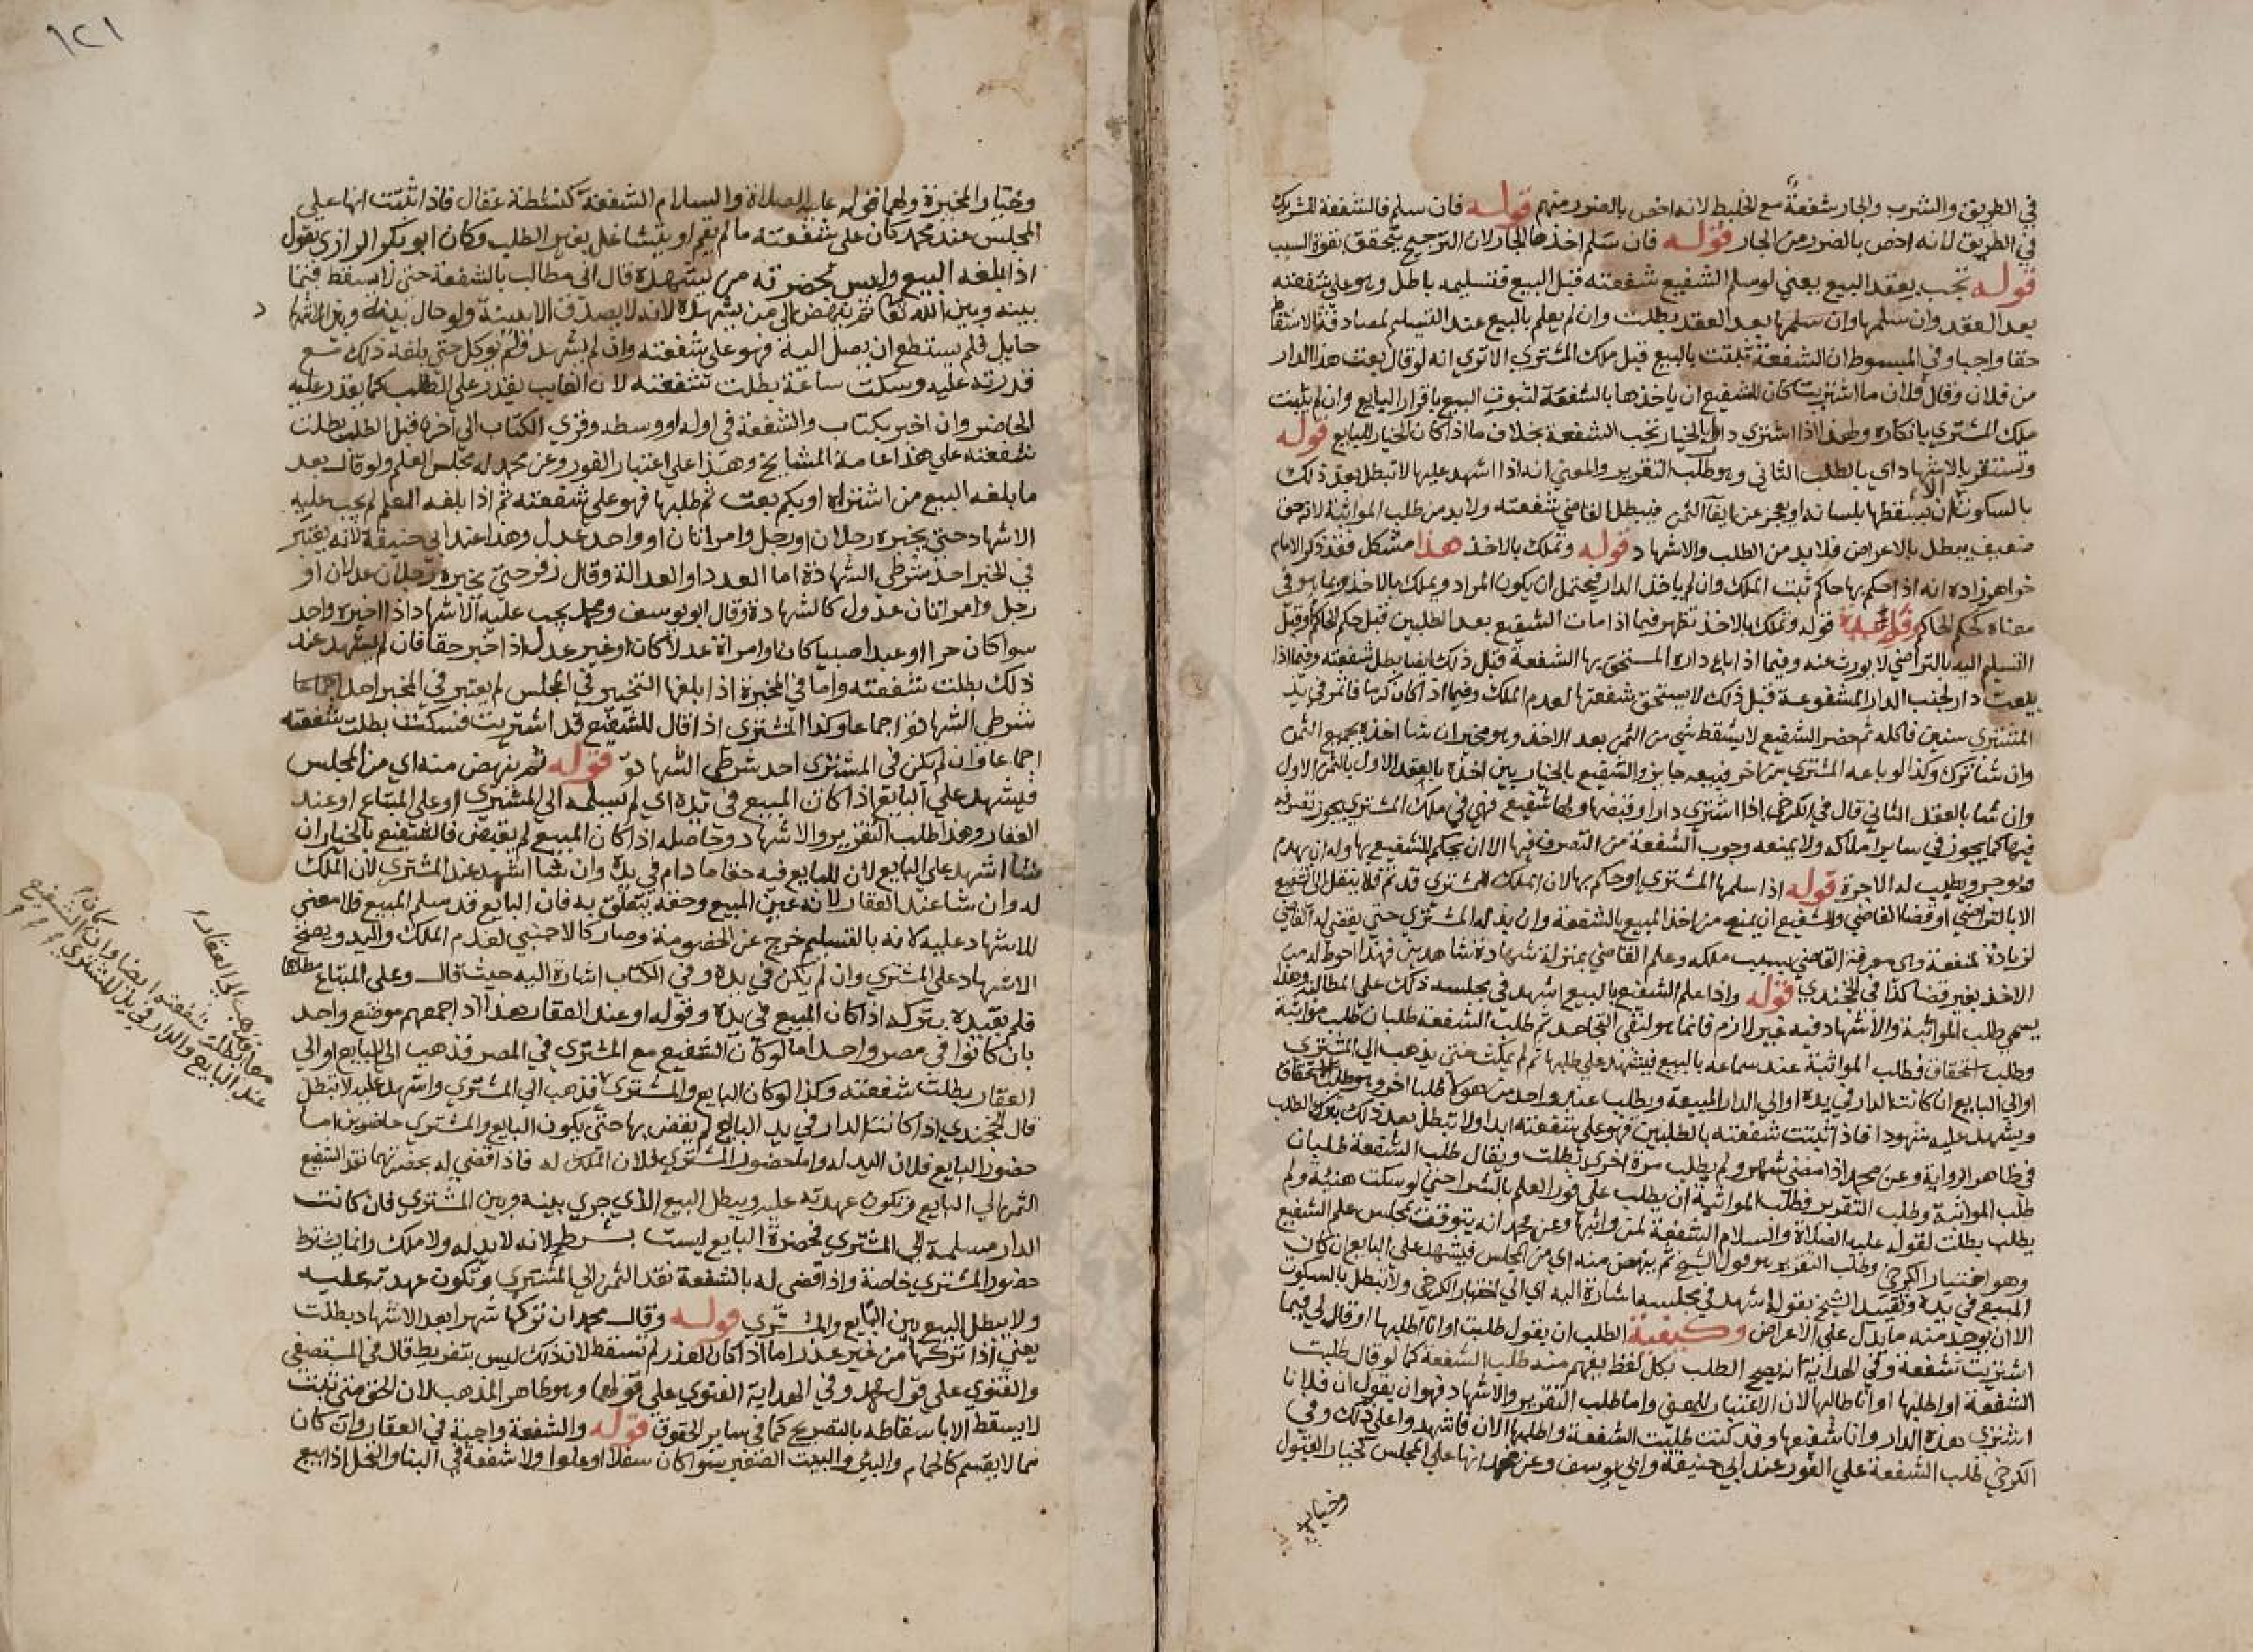 في الطريق والشرب والجار شفعة مع الخليط لانه اخص بالضرر منهم قوله فان سلم فالشفعة للشريك
في الطريق لانه اخص بالضرر من الجار قوله فان سلم اخذها الجار لان الترجيح يتحقق بقوة السبب
قوله تجب بعقد البيع يعني لو سلم الشفيع شفعته قبل البيع فتسليمه باطل وهو على شفعته
بعد العقد وان سلمها وان سلمها بعد العقد بطلت وان لم يعلم بالبيع عند التسليم لمصادفة الاسقاط
حقا واجبا وفي المبسوط ان الشفعة تعلقت بالبيع قبل ملك المشتري الا ترى انه لو قال بعت هذا الدار
من فلان وقال فلان ما اشتريت كان للشفيع ان ياخذها بالشفعة لثبوت البيع باقرار البايع وان لم يثبت
ملك المشتري بانكاره ولهذا اذا اشتري دارا بالخيار تجب الشفعة بخلاف ما اذا كان الخيار للبايع قوله
وتستقر بالاشهاد اي بالطلب الثاني وهو طلب التقرير والمعنى انه اذا اشهد عليها لا تبطل بعد ذلك
بالسكوت الا ان يسقطها بلسانه او يعجز عن ايفا الثمن فيبطل القاضي شفعته ولا بد من طلب المواثبة لانه حق
ضعيف يبطل بالاعراض فلا بد من الطلب والاشهاد قوله وتملك بالاخذ هذا مشكل فقد ذكر الامام
خواهر زاده انه اذا حكم بها حاكم ثبت الملك وان لم ياخذ الدار فيحتمل ان يكون المراد ويملك بالاخذ وبما هو في
معناه كحكم الحاكم وفايدة قوله وتملك بالاخذ تظهر فيما اذا مات الشفيع بعد الطلبين قبل حكم الحاكم او قبل
التسليم اليه بالتراضي لا يورث عنه وفيما اذا باع داره المستحق بها الشفعة قبل ذلك ايضا بطل شفعته وفيما اذا
بيعت دار بجنب الدار المشفوعة قبل ذلك لا يستحق شفعتها لعدم الملك وفيما اذا كان كرما فاثمر في يد
المشتري سنين فاكله ثم حضر الشفيع لا يسقط شي من الثمن بعد الاخذ وهو مخير ان شا اخذه بجميع الثمن
وان شا ترك وكذا لو باعه المشتري من اخر فبيعه جايز والشفيع بالخيار بين اخذه بالعقد الاول بالثمن الاول
وان شا بالعقد الثاني قال في الكرخي اذا اشتري دارا وقبضها ولها شفيع فهي في ملك المشتري يجوز تصرفه
فيها كما يجوز في ساير املاكه ولا يمنعه وجوب الشفعة من التصرف فيها الا ان يحكم للشفيع بها وله ان يهدم
ويوجر ويطيب له الاجرة قوله اذا سلمها المشتري او حكم بها لان الملك للمشتري قد تم فلا ينتقل الى الشفيع
الا بالتراضي او قضا القاضي وللشفيع ان يمتنع من اخذ المبيع بالشفعة وان بذله المشتري حتى يقضي له القاضي
لزيادة منفعة وهي معرفة القاضي بسبب ملكه وعلم القاضي بمنزلة شهادة شاهدين فهذا احوط له من
الاخذ بغير قضا كذا في الخجندي قوله واذا علم الشفيع بالبيع اشهد في مجلسه ذلك على المطالبة وهذا
يسمى طلب المواثبة والاشهاد فيه غير لازم فانما هو لنفي التجاحد ثم طلب الشفعة طلبان طلب مواثبة
وطلب استحقاق فطلب المواثبة عند سماعه بالبيع فيشهد على طلبها ثم لم يمكث حتى يذهب الي المشتري
او الي البايع ان كانت الدار في يده او الي الدار المبيعة ويطلب عند واحد من هولا طلبا اخر وهو طلب استحقاق
ويشهد عليه شهودا فاذا اثبتت شفعته بالطلبين فهو على شفعته ابدا ولا تبطل بعد ذلك بترك الطلب
في ظاهر الرواية وعن محمد اذا مضى شهر ولم يطلب مرة اخري بطلت ويقال طلب الشفعة طلبان
طلب المواثبة وطلب التقرير فطلب المواثبة ان يطلب على فور العلم بالشرا حتى لو سكت هنيئة ولم
يطلب بطلت لقوله عليه الصلاة والسلام الشفعة لمن واثبها وعن محمد انه يتوقف بمجلس علم الشفيع
وهو اختيار الكرخي وطلب التقرير هو قول الشيخ ثم ينهض منه اي من المجلس فيشهد علي البايع ان كان
المبيع في يده وتقييد الشيخ بقوله اشهد في مجلسه اشارة اليه اي الى اختيار الكرخي ولا تبطل بالسكوت
الا ان يوجد منه ما يدل على الاعراض وكيفية الطلب ان يقول طلبت او انا اطلبها او قال لي فيما
اشتريت شفعة وفي الهداية انه يصح الطلب بكل لفظ يفهم منه طلب الشفعة كما لو قال طلبت
الشفعة او اطلبها او انا طالبها لان الاعتبار للمعنى واما طلب التقرير والاشهاد فهو ان يقول ان فلانا
اشتري هذه الدار وانا شفيعها وقد كنت طلبت الشفعة واطلبها الان فاشهدوا على ذلك وفي
الكرخي طلب الشفعة علي الفور عند ابي حنيفة وابي يوسف وعن محمد انها علي المجلس كخيار القبول
وخيار
١٢١
وخيار المخيرة ولهما قوله عليه الصلاة والسلام الشفعة كنشطة عقال فاذا اثبتت انها علي
المجلس عند محمد كان على شفعته ما لم يقم او يتشاغل بغير الطلب وكان ابو بكر الرازي يقول
اذا بلغه البيع وليس بحضرته من يشهده قال اني مطالب بالشفعة حتى لا يسقط فيما
بينه وبين الله تعا ثم ينهض الى من يشهده لانه لا يصدق الا ببينة ولو حال بينه وبين الاشهاد
حايل فلم يستطع ان يصل اليه فهو على شفعته وان لم يشهد ولم يوكل حتى بلغه ذلك مع
قدرته عليه وسكت ساعة بطلت شفعته لان الغايب يقدر علي الطلب كما يقدر عليه
الحاضر وان اخبر بكتاب والشفعة في اوله او وسطه وقري الكتاب الى آخره قبل الطلب بطلت
شفعته على هذا عامة المشايخ وهذا على اعتبار الفور وعن محمد له مجلس العلم ولو قال بعد
ما بلغه البيع من اشتراه او بكم بعت ثم طلبها فهو على شفعته ثم اذا بلغه العلم لم يجب عليه
الاشهاد حتى يخبره رجلان او رجل وامراتان او واحد عدل وهذا عند ابي حنيفة لانه يعتبر
في الخبر احد شرطي الشهادة اما العدد او العدالة وقال زفر حتى يخبره رجلان عدلان او
رجل وامراتان عدول كالشهادة وقال ابو يوسف ومحمد يجب عليه الاشهاد اذا اخبره واحد
سوا كان حرا او عبدا صبيا كان او امراة عدلا كان او غير عدل اذا اخبر حقا فان لم يشهد عند
ذلك بطلت شفعته واما في المخيرة اذا بلغها التخيير في المجلس لم يعتبر في المخبر احد
شرطي الشهادة اجماعا وكذا المشتري اذا قال للشفيع قد اشتريت فسكت بطلت شفعته
اجماعا وان لم يكن في المشتري احد شرطي الشهادة قوله ثم ينهض منه اي من المجلس
فيشهد علي البايع اذا كان المبيع في يده اي لم يسلمه الي المشتري او على المبتاع او عند
العقار وهذا طلب التقرير والاشهاد وحاصله اذا كان المبيع لم يقبض فالشفيع بالخيار ان
شا اشهد على البايع لان للبايع فيه حقا ما دام في يده وان شا اشهد عند المشتري لان الملك
له وان شا عند العقار لانه عين المبيع وحقه يتعلق به فان البايع قد سلم المبيع فلا معنى
للاشهاد عليه لانه بالتسليم خرج عن الخصومة وصار كالاجنبي لعدم الملك واليد ويصح
الاشهاد على المشتري وان لم يكن في يده وفي الكتاب اشارة اليه حيث قال وعلى المبتاع مطلقا
فلم يقيده بتركه اذا كان المبيع في يده وقوله او عند العقار هذا اذا جمعهم موضع واحد
بان كانوا في مصر واحد اما لو كان الشفيع مع المشتري في المصر فذهب الي البايع او الي
العقار بطلت شفعته وكذا لو كان البايع والمشتري فذهب الي المشتري واشهد عليه لا تبطل
قال الخجندي اذا كانت الدار في يد البايع لم يقض بها حتى يكون البايع والمشتري حاضرين اما
حضور البايع فلان اليد له واما حضور المشتري فلان الملك له فاذا قضي له بحضرتهما نقد الشفيع
الثمن الي البايع وتكون عهدته عليه ويبطل البيع الذي جري بينه وبين المشتري فان كانت
الدار مسلمة الي المشتري فحضرة البايع ليست بشرط لانه لا يد له ولا ملك وانما يشترط
حضور المشتري خاصة واذا قضي له بالشفعة نقد الثمن الي المشتري وتكون عهدته عليه
ولا يبطل البيع بين البايع والمشتري قوله وقال محمد ان تركها شهرا بعد الاشهاد بطلت
يعني اذا تركها من غير عذر اما اذا كان لعذر لم تسقط لان ذلك ليس بتفريط قال في المستصفى
والفتوي علي قول محمد وفي الهداية الفتوي على قولهما وهو ظاهر المذهب لان الحق متى ثبت
لا يسقط الا باسقاطه بالتصريح كما في ساير الحقوق قوله والشفعة واجبة في العقار وان كان
مما لا يقسم كالحمام والبير والبيت الصغير سوا كان سفلا او علوا ولا شفعة في البنا والنخل اذا بيع
معا فذهب الي العقار
بطلت شفعته ايضا وان كان الشفيع
عند البايع والدار في يد المشتري